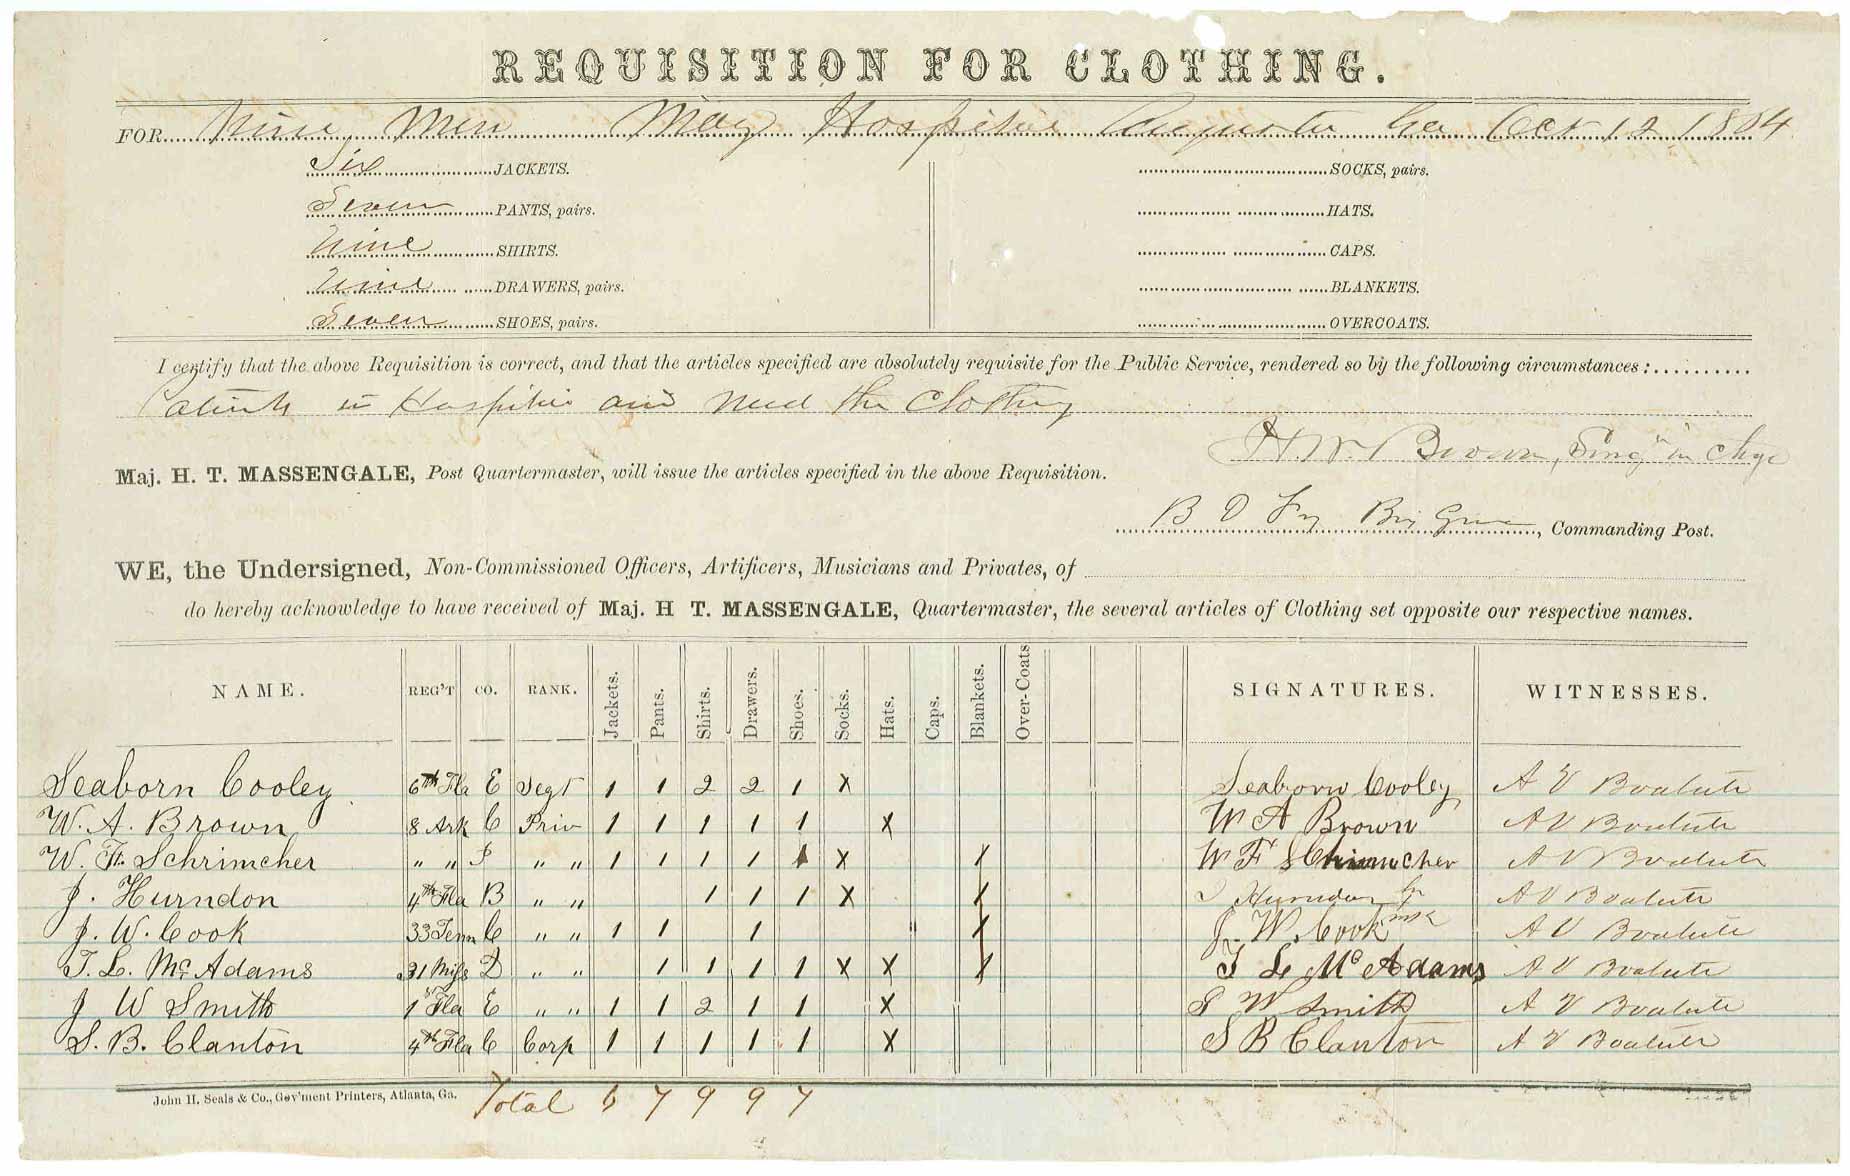 REQUISITION FOR CLOTHING.
FOR Nine Men May Hospital Augusta Ga Oct 12 1864
Six JACKETS.
Seven PANTS, pairs.
Nine SHIRTS.
Nine DRAWERS, pairs.
Seven SHOES, pairs.
SOCKS, pairs.
HATS.
CAPS.
BLANKETS.
OVERCOATS.
I certify that the above Requisition is correct, and that the articles specified are absolutely requisite for the Public Service, rendered so by the following circumstances:
Patients in Hospital and need the Clothing
H. W. Brown, Surg in Chge
Maj. H. T. MASSENGALE, Post Quartermaster, will issue the articles specified in the above Requisition.
B D Fry Brig Gen, Commanding Post.
WE, the Undersigned, Non-Commissioned Officers, Artificers, Musicians and Privates, of
do hereby acknowledge to have received of Maj. H T. MASSENGALE, Quartermaster, the several articles of Clothing set opposite our respective names.
NAME. REG'T CO. RANK. Jackets. Pants. Shirts. Drawers. Shoes. Socks. Hats. Caps. Blankets. Over-Coats SIGNATURES. WITNESSES.
Seaborn Cooley 6th Fla E Segt 1 1 2 2 1 x Seaborn Cooley A V
W. A. Brown 8 Ark C Priv 1 1 1 1 1 x W A Brown A V
W. F. Schrimcher " " " " 1 1 1 1 1 x 1 W F Schrimcher A V
J. Hurndon 4th Fla B " " 1 1 1 x 1 J Hurndon A V
J. W. Cook 33 Tenn C " " 1 1 1 1 J. W. Cook A V
T. L. McAdams 31 Miss D " " 1 1 1 1 x x 1 T L McAdams A V
J W Smith 1st Fla E " " 1 1 2 1 1 x J W Smith A V
S. B. Clanton 4th Fla C Corp 1 1 1 1 1 x S B Clanton A V
John H. Seals & Co., Gov'ment Printers, Atlanta, Ga. Total 6 7 9 9 7